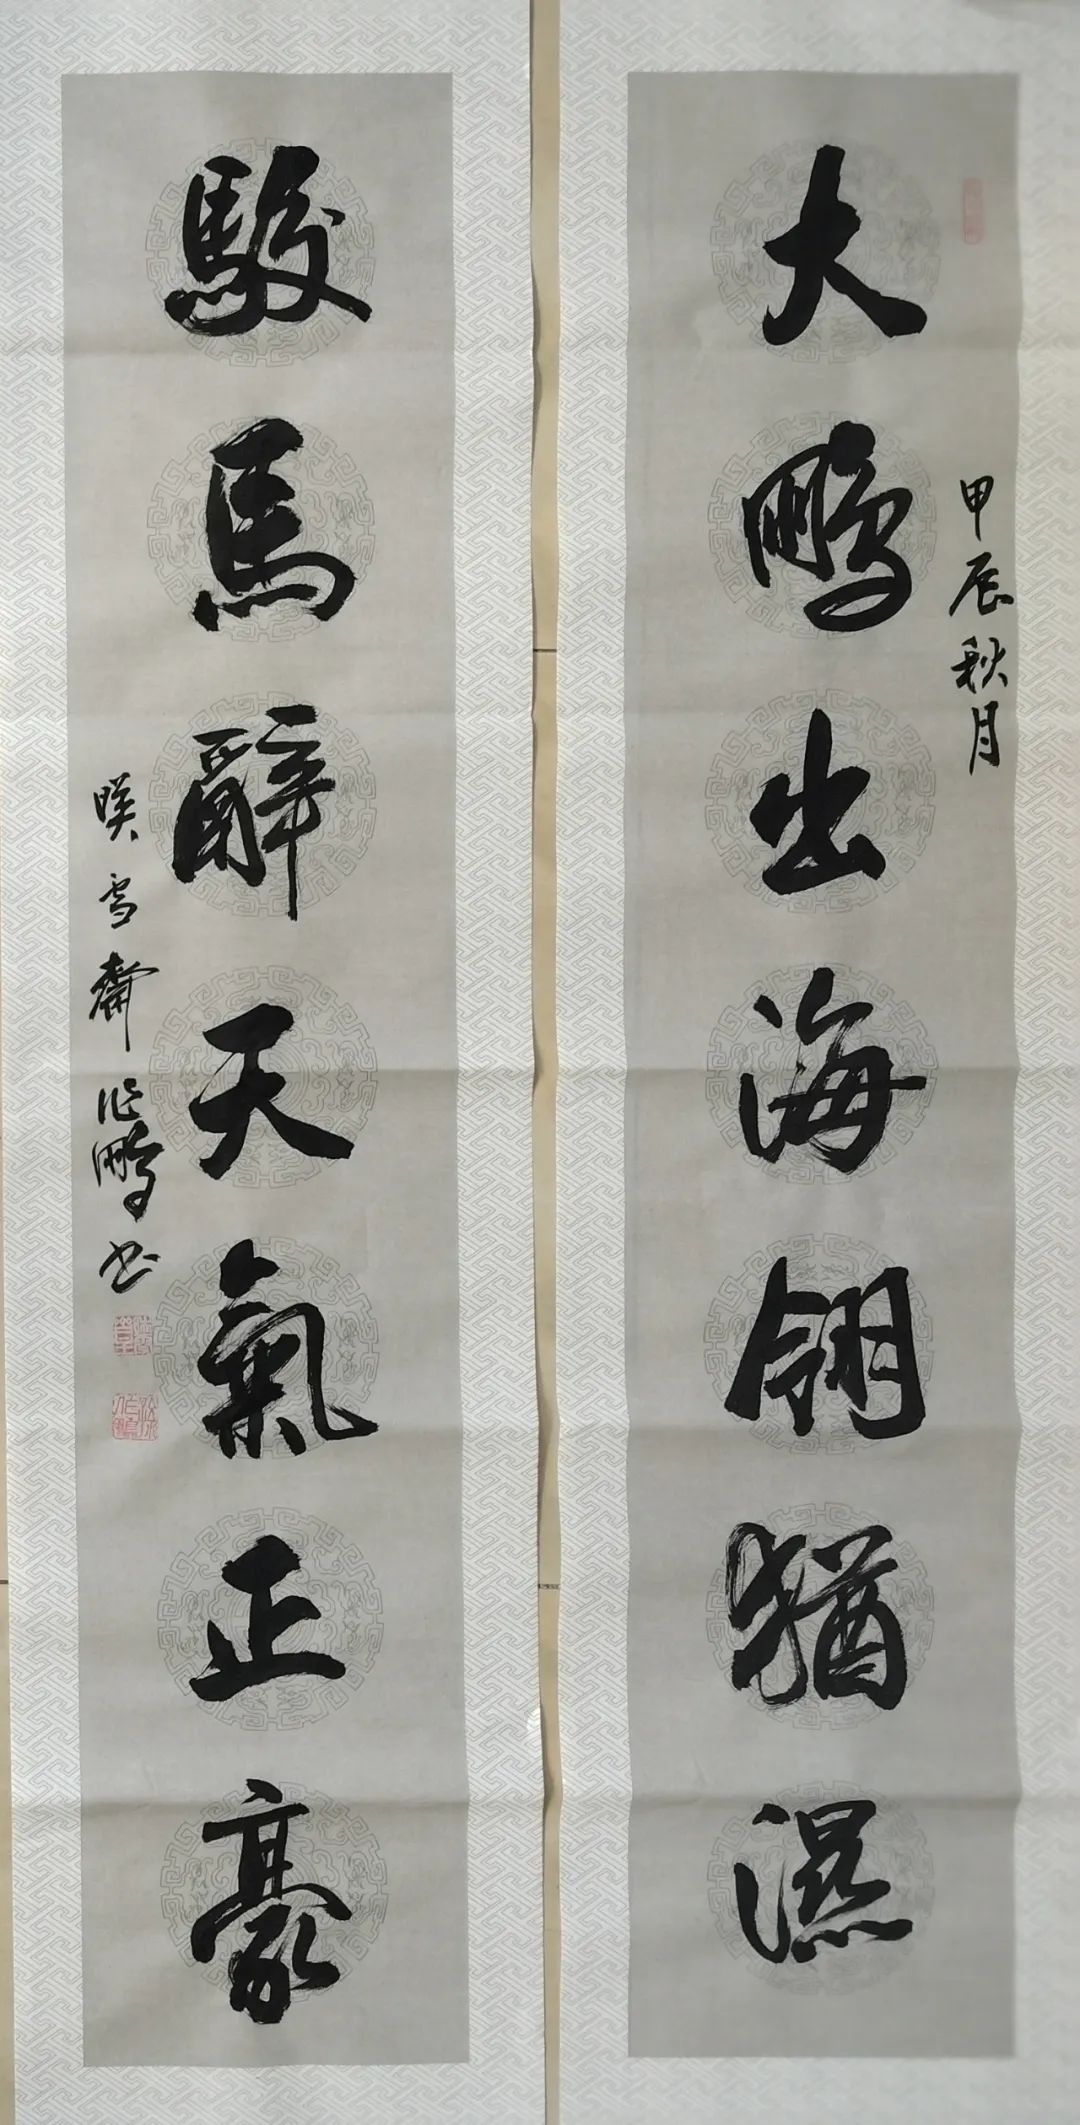 大鵬出海翎猶濕
甲辰秋月
駿馬辭天氣正豪
雪齋作鵬书